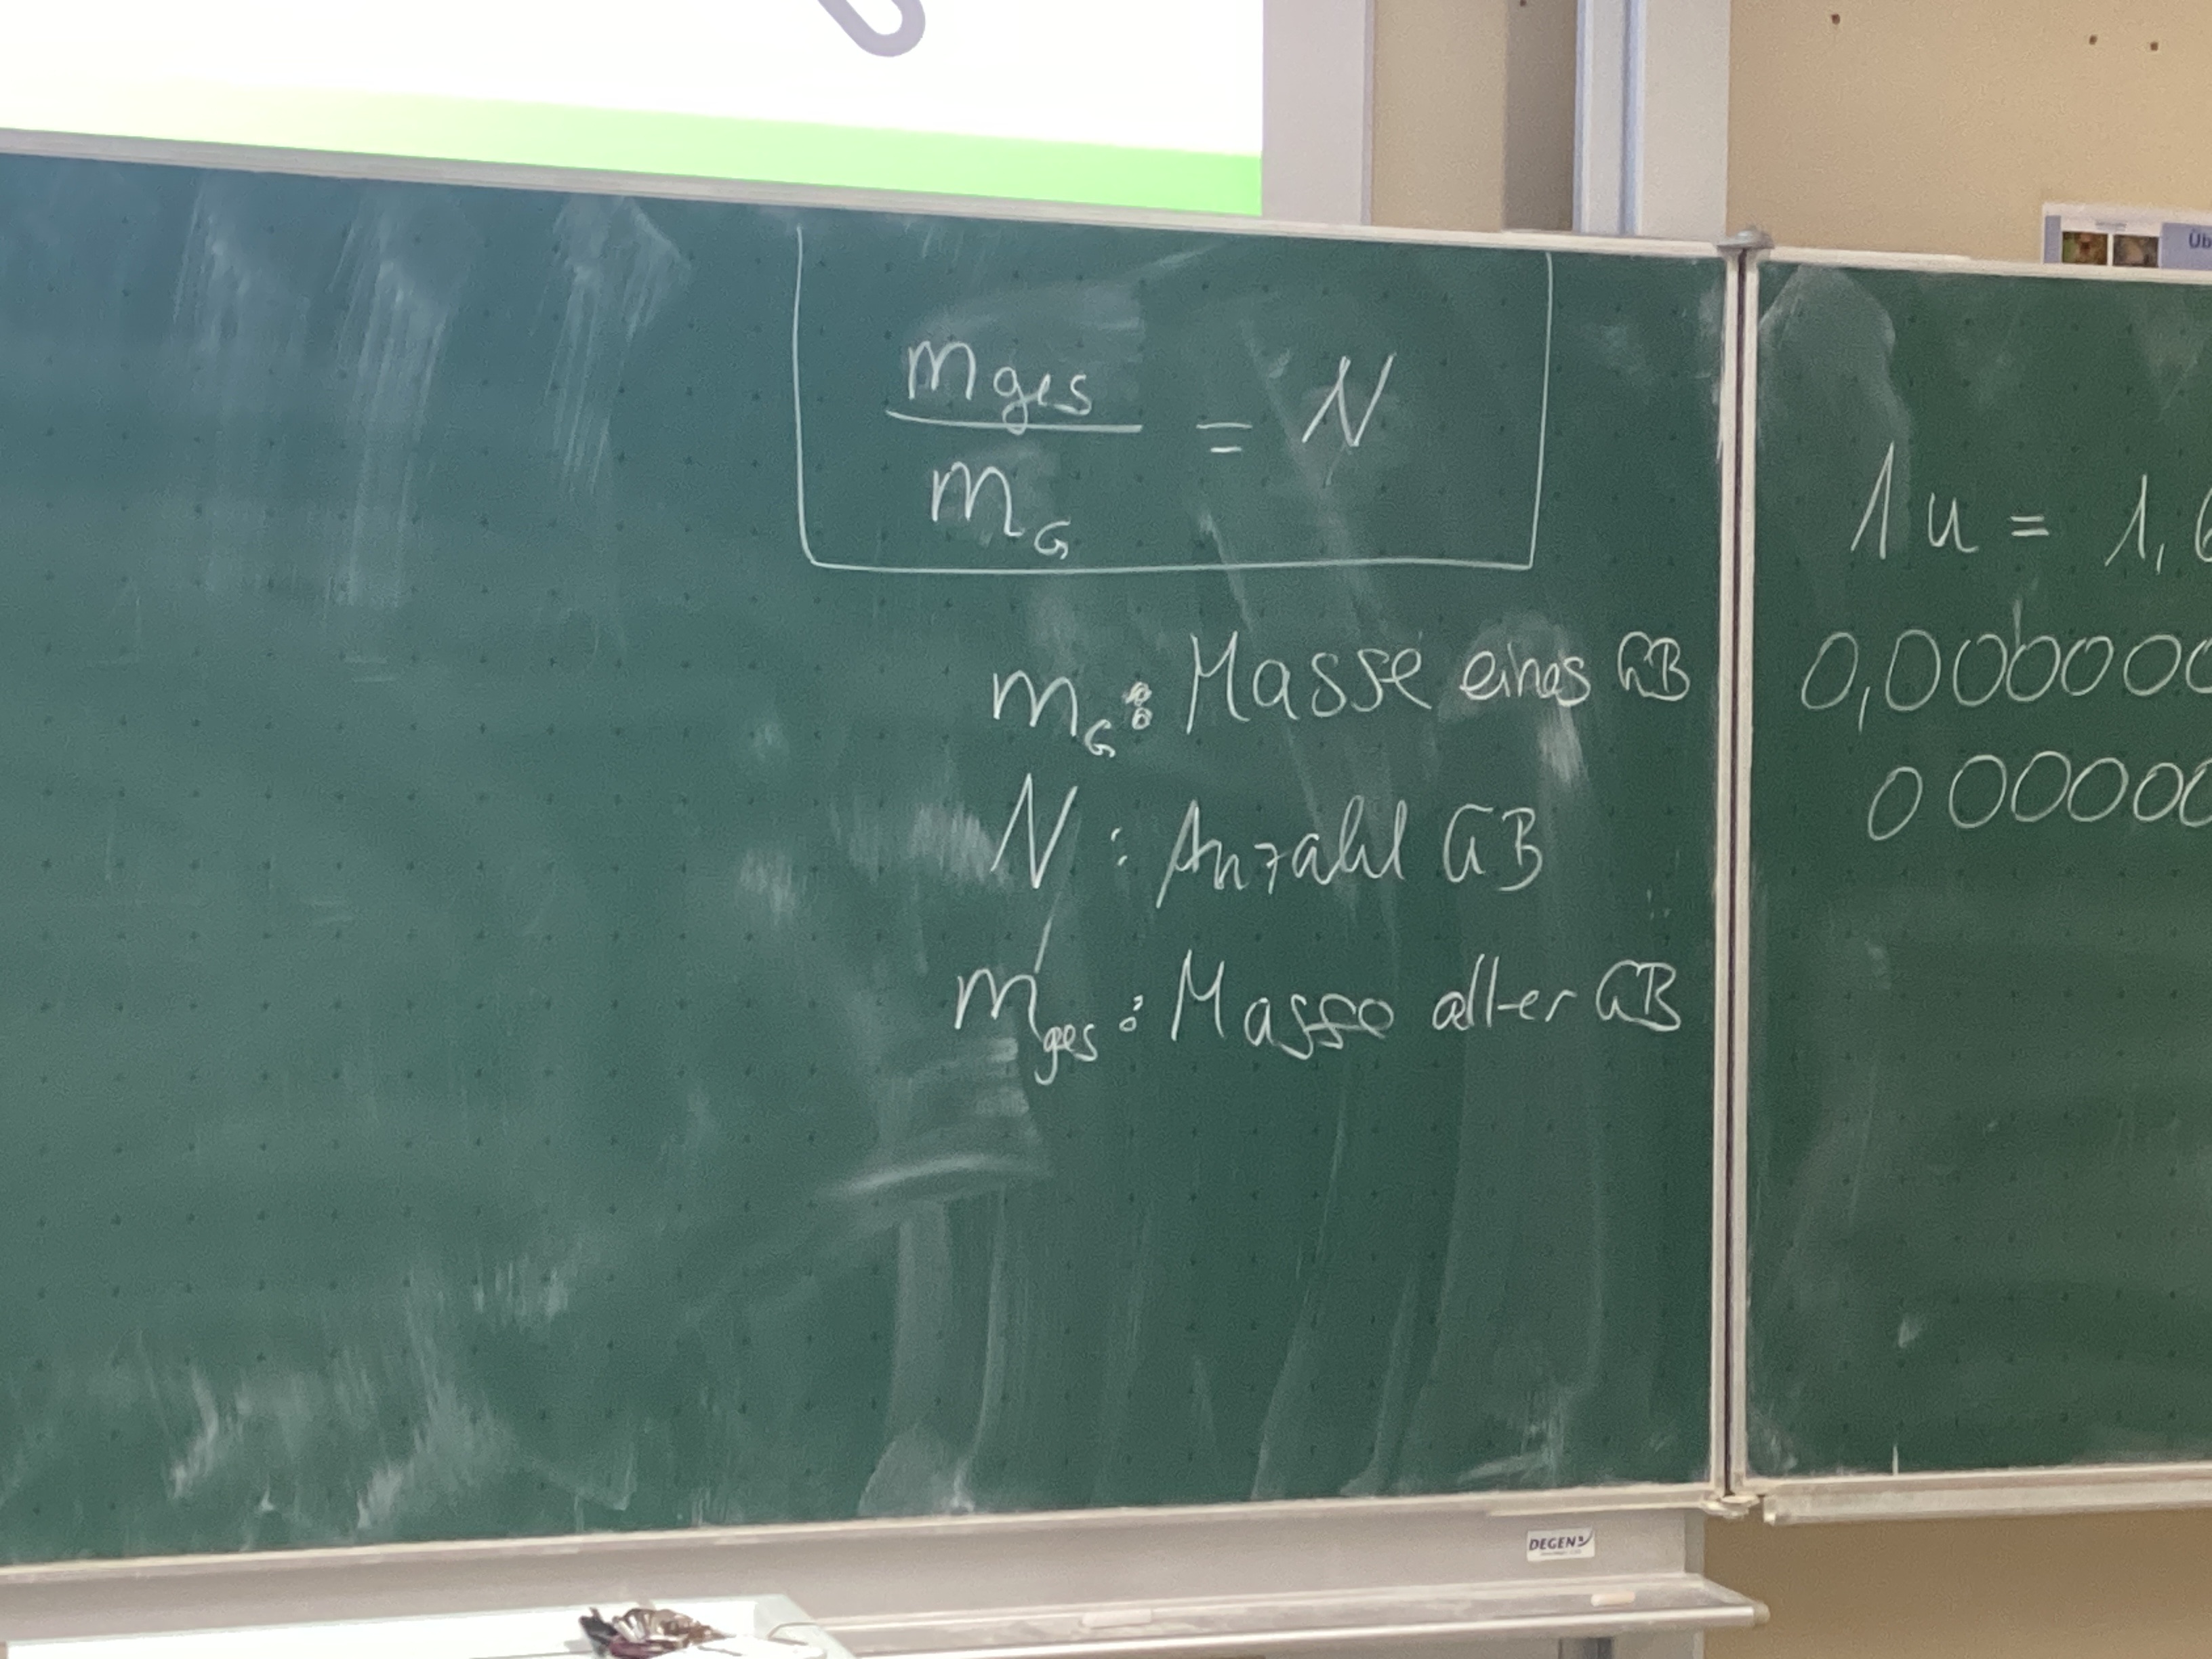 m ges
= N
m G
m G : Masse eines GB
N : Anzahl GB
m ges : Masse aller GB
1 u = 1,6
0,000000
000000
Üb
DEGEN